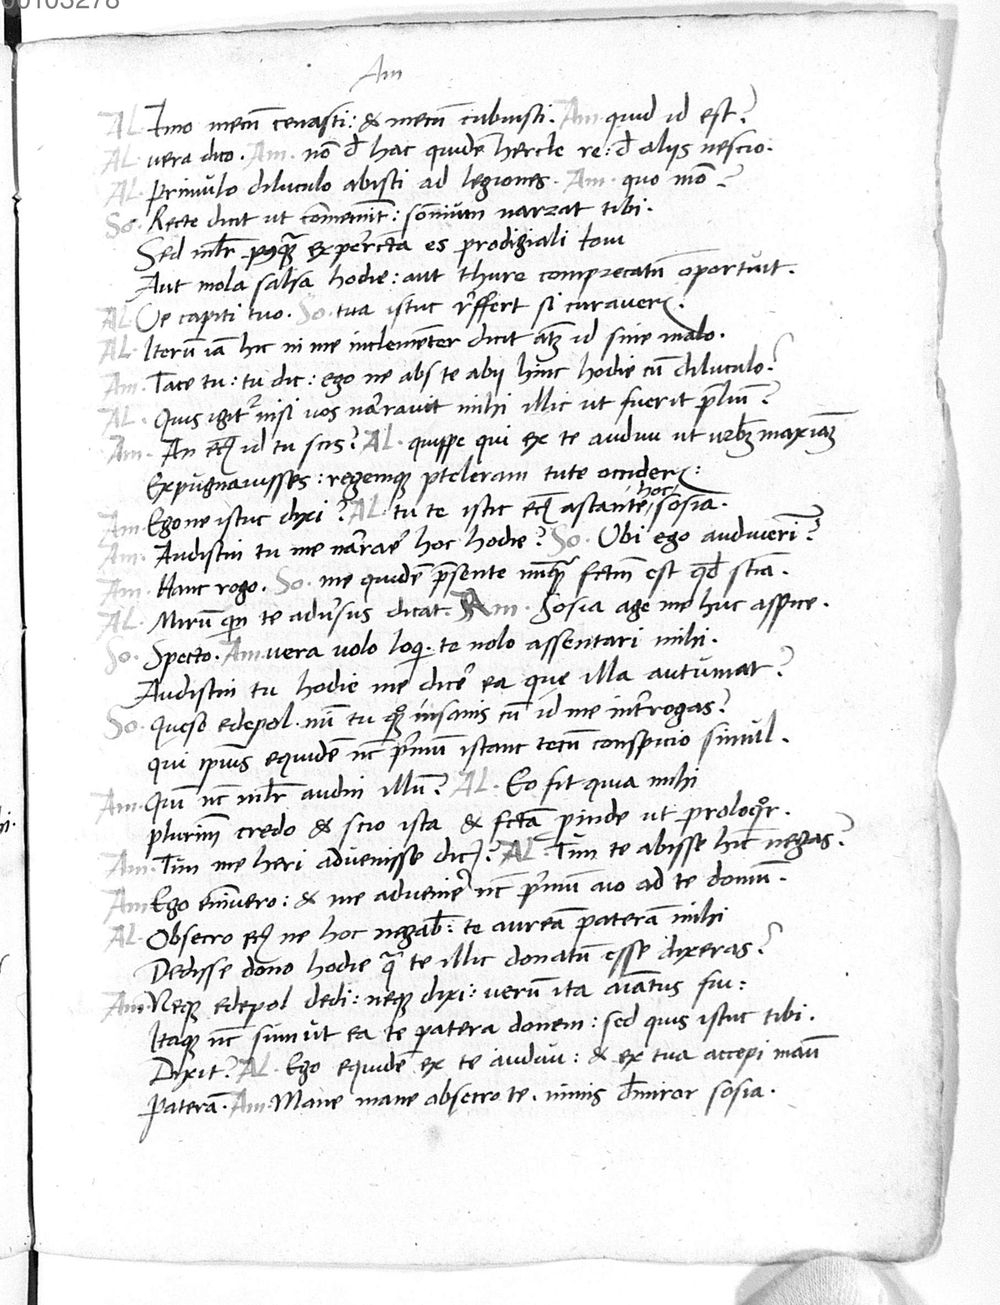 00103278
Am
AL. Imo mecū cenasti: & mecū cubuisti. Am. quid id est?
AL. vera dico. Am. nō đ hac quidē hercle re: đ alijs nescio.
AL. Primulo diluculo abisti ad legiones. Am. quo mō?
So. Recte dicit ut cōmeminit: somnium narrat tibi.
Sed mlr̄ expercta es prodigiali Iovi
Aut mola salsa hodie: aut thure comprecatū oportuit.
AL. Ve capiti tuo. So. tua istuc r̄ffert si curaver
AL. Iterū iā hic in me inclemēter dicit atqꝫ id sine malo.
Am. Tace tu: tu dic: ego ne abs te abij hinc hodie cū diluculo?
AL. Quis igit᷑ nisi vos narravit mihi illic ut fuerit p̄liū?
Am. An etiā id tu scis? AL. quippe qui ex te audivi ut urbē maximā
Expugnavisses: regemqꝫ pteleram tute occider:
Am. Egone istuc dixi? AL. tu te istic etiā astante hoc sosia.
Am. Audistin tu me narrare hoc hodie? So. Ubi ego audiverim?
Am. Hanc rogo. So. me quidē p̄sente nunqꝫ fctm̄ est qđ sciā.
AL. Mirū qin te adversus dicat. Am. Sosia age me huc aspice.
So. Specto. Am. vera volo loqi. te nolo assentari mihi.
Audistin tu hodie me dicer̄ ea quę illa autumat?
So. Queso edepol. nū tu qꝫ insanis cū id me interrogas?
qui ipsus equidē nc̄ p̄mum istanc tecū conspicio simul.
Am. Quī nc̄ mlr̄ audin illū? AL. Eo fit quia mihi
plurimū credo & scio ista & fctā pinde ut proloqor.
Am. Tun me heri advenisse dic? AL. Tun te abisse hīc negas?
Am. Ego enīvero: & me advenir̄ nc̄ p̄mum aio ad te domū.
AL. Obsecro etiā ne hoc negab: te aureā paterā mihi
Dedisse dono hodie qā te illic donatū esse dixeras?
Am. Neqꝫ edepol dedi: neqꝫ dixi: verū ita aīatus fui:
Itaqꝫ nc̄ sum ut ea te patera donem: sed quis istuc tibi.
Dixit? AL. Ego equidē ex te audivi: & ex tua accepi manū
Paterā. Am. Mane mane obsecro te. nimis đmiror sosia.